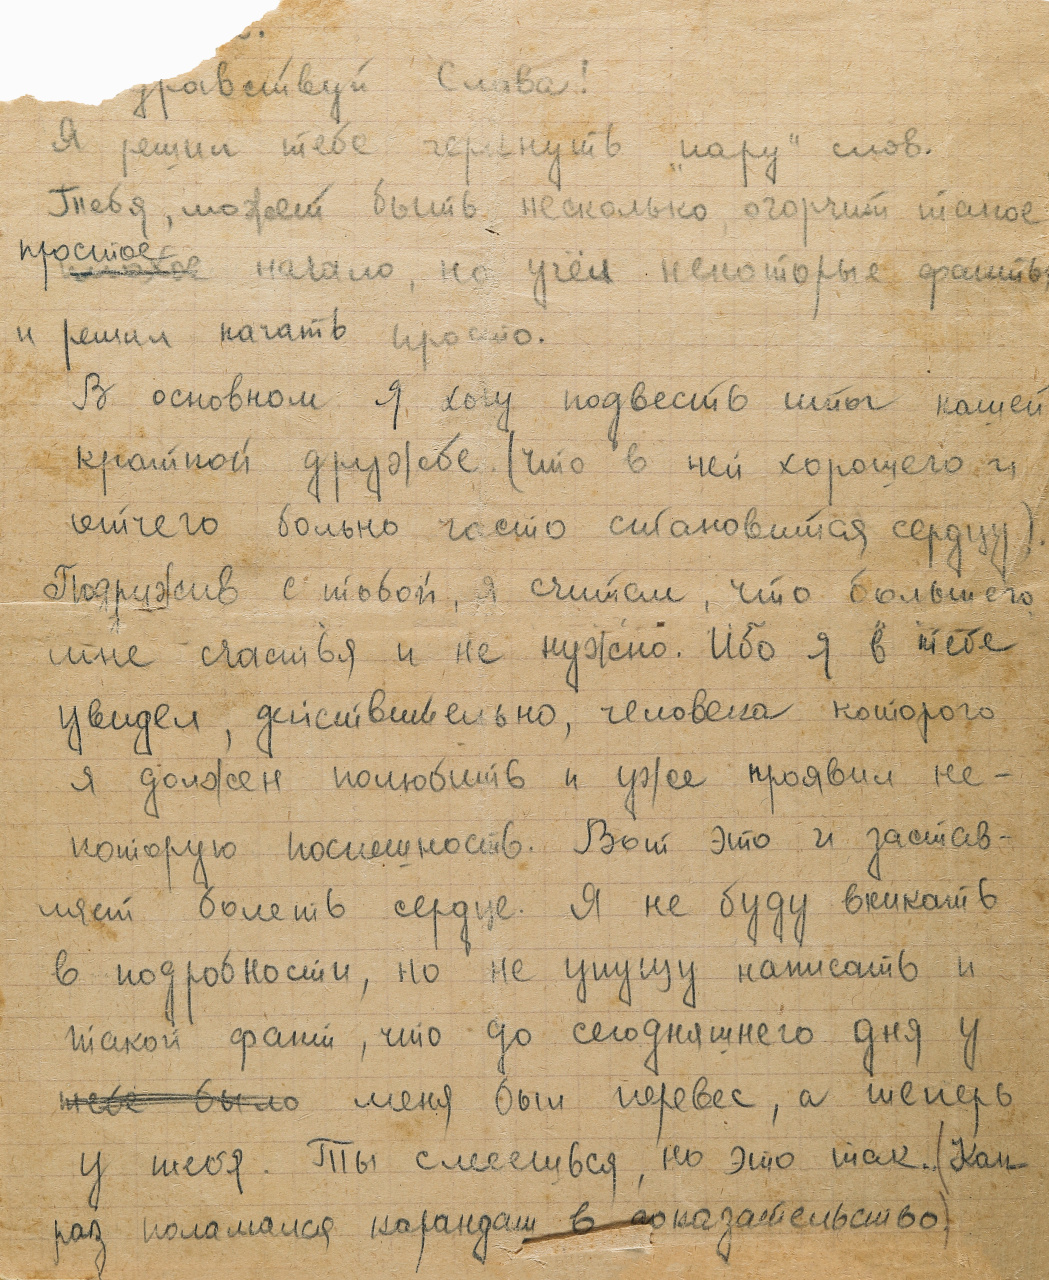 дравствуй Слава!
Я решил тебе черкнуть "пару" слов.
Тебя, может быть несколько огорчит такое
простое
начало, но учёл некоторые факты
и решил начать просто.
В основном я хочу подвесть итог нашей
краткой дружбе (что в ней хорошего и
отчего больно часто становится сердцу).
Подружив с тобой, я считал, что большего
мне счастья и не нужно. Ибо я в тебе
увидел, действительно, человека которого
я должен полюбить и уже проявил не-
которую поспешность. Вот это и застав-
ляет болеть сердце. Я не буду вникать
в подробности, но не упущу написать и
такой факт, что до сегодняшнего дня у
тебе было меня был перевес, а теперь
у тебя. Ты смеешься, но это так. (Как
раз поламался карандаш в доказательство)